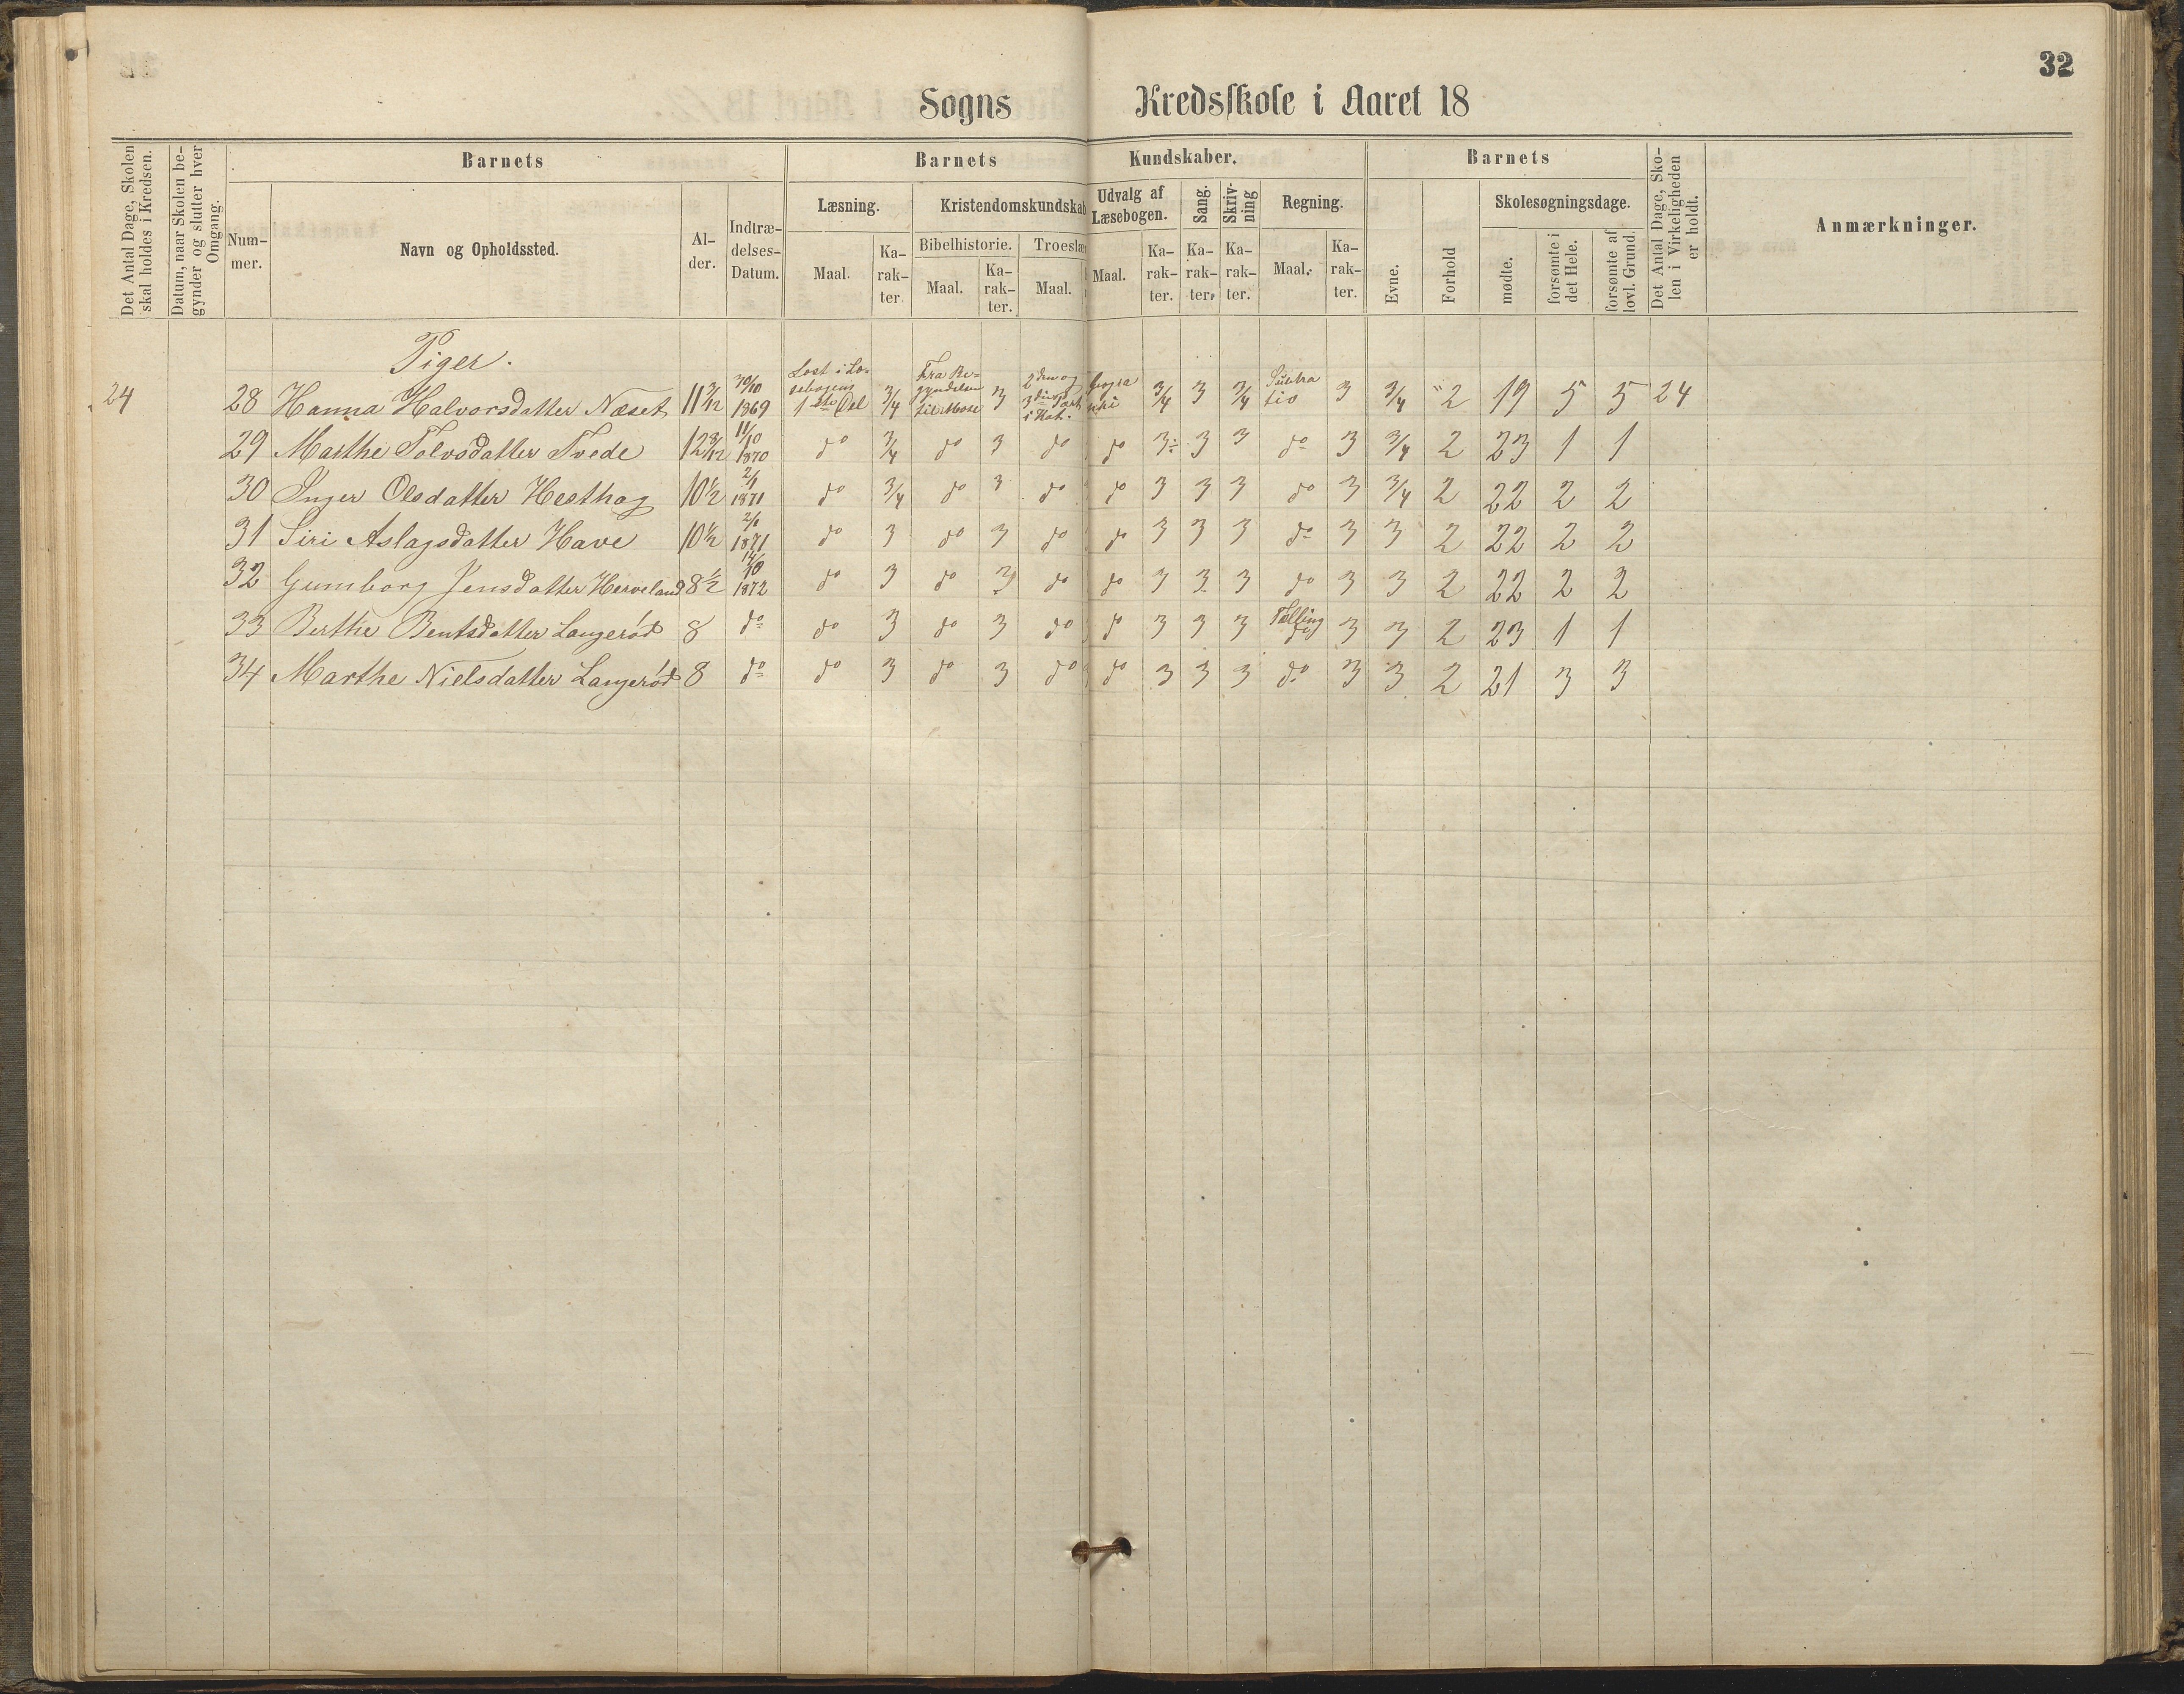 32
Sogns Kredsskole i Aaret 18
Det Antal Dage, Skolen skal holdes i Kredsen.
Datum, naar Skolen begynder og slutter hver Omgang.
Barnets
Nummer.
Navn og Opholdssted.
Alder.
Indtrædelses-Datum.
Barnets Kundskaber.
Læsning.
Maal.
Karakter.
Kristendomskundskab
Bibelhistorie.
Maal.
Karakter.
Troeslæ
Maal.
Udvalg af Læsebogen.
Maal.
Karakter.
Sang.
Karakter.
Skrivning
Karakter.
Regning.
Maal.
Karakter.
Barnets
Evne.
Forhold
Skolesøgningsdage.
mødte.
forsømte i det Hele.
forsømte af lovl. Grund.
Det Antal Dage, Skolen i Virkeligheden er holdt.
Anmærkninger.
Piger.
24 28 Hanna Halvorsdatter Næset 11 3/12 30/10 1869 Læst i Læsebogens 1ste Del 3/4 Fra Begyndelsen til Mose 3 2den og 3die Part i Kat. 3/4 3 3/4 Subtra tio 3 3/4 2 19 5 5 24
29 Marthe Tolvsdatter Tvede 12 8/12 11/10 1870 do 3/4 do 3 do do 3÷ 3 3 do 3 3/4 2 23 1 1
30 Inger Olsdatter Hesthag 10 1/2 2/1 1871 do 3/4 do 3 do do 3 3 3 do 3 3/4 2 22 2 2
31 Siri Aslagsdatter Have 10 1/2 2/1 1871 do 3 do 3 do do 3 3 3 do 3 3 2 22 2 2
32 Gunnborg Jensdatter Herveland 8 1/2 14/10 1872 do 3 do 3 do do 3 3 3 do 3 3 2 22 2 2
33 Berthe Bentsdatter Langerød 8 do do 3 do 3 do do 3 3 3 Tælling 3 3 2 23 1 1
34 Marthe Nielsdatter Langerød 8 do do 3 do 3 do do 3 3 3 do 3 3 2 21 3 3